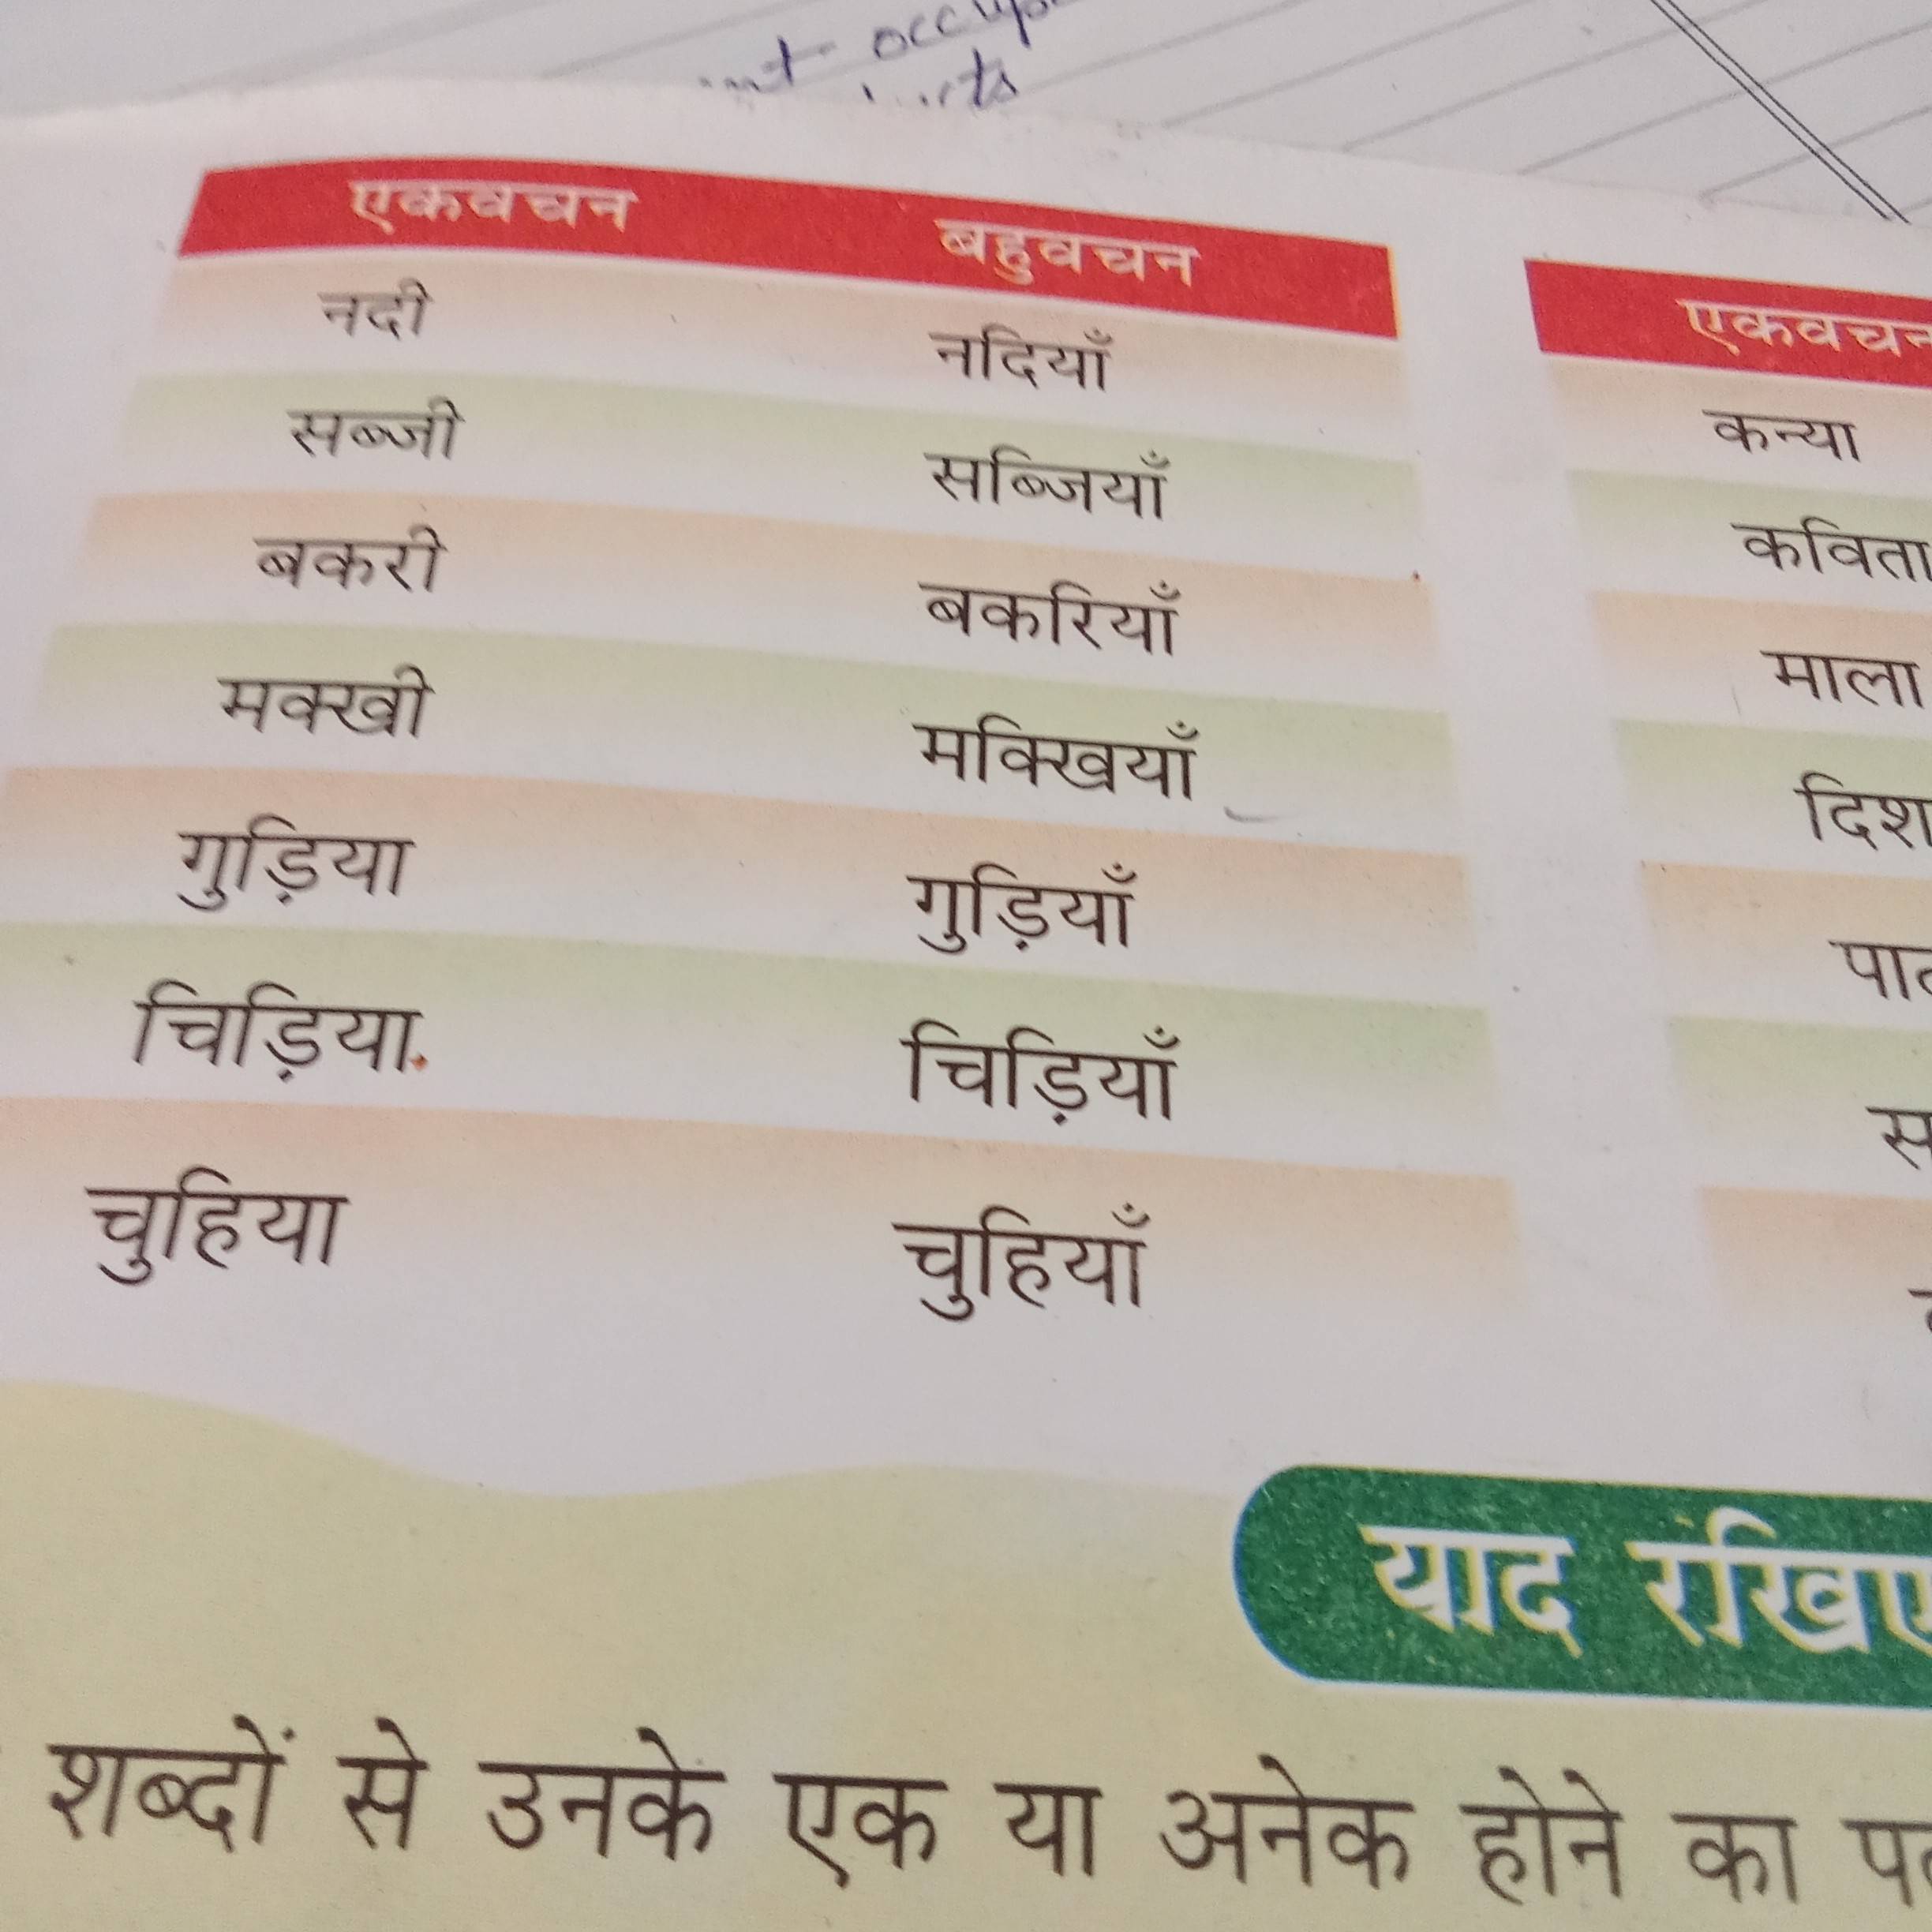 एकवचन बहुवचन
नदी नदियाँ
सब्जी सब्जियाँ
बकरी बकरियाँ
मक्खी मक्खियाँ
गुड़िया गुड़ियाँ
चिड़िया चिड़ियाँ
चुहिया चुहियाँ
एकवचन
कन्या
कविता
माला
याद रखिए
शब्दों से उनके एक या अनेक होने का